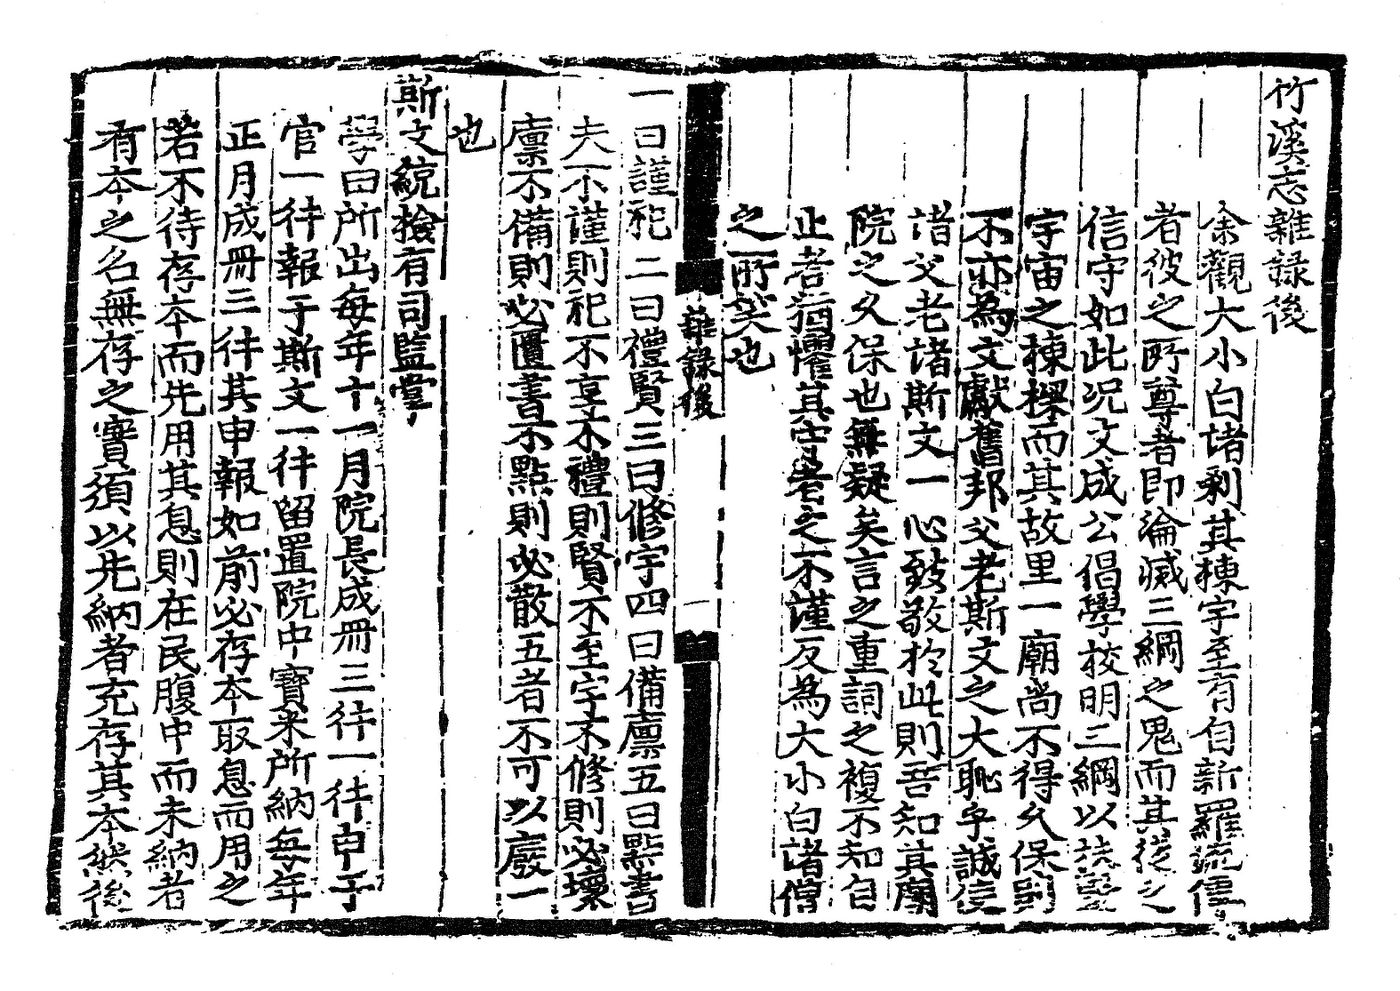 竹溪志雜錄後
余觀大小白諸剎其棟宇至有自新羅流傳
者彼之所尊者即淪滅三綱之鬼而其從之
信守如此況文成公倡學校明三綱以扶
宇宙之棟樑而其故里一廟尚不得久保到
不亦為文獻舊邦父老斯文之大恥乎誠使
諸父老諸斯文一心致敬於此則吾知其廟
院之久保也無疑矣言之重詞之複不知自
止者猶懼其守者之不謹反為大小白諸僧
之所笑也
雜錄後
一曰謹祀二曰禮賢三曰修宇四曰備廩五曰點書
夫不謹則祀不享不禮則賢不至宇不修則必壞
廩不備則必匱書不點則必散五者不可以廢一
也
斯文統檢有司監掌
學曰所出每年十一月院長成冊三件一件申于
官一件報于斯文一件留置院中寶米所納每年
正月成冊三件其申報如前必存本取息而用之
若不待存本而先用其息則在民腹中而未納者
有本之名無存之實須以先納者充存其本然後